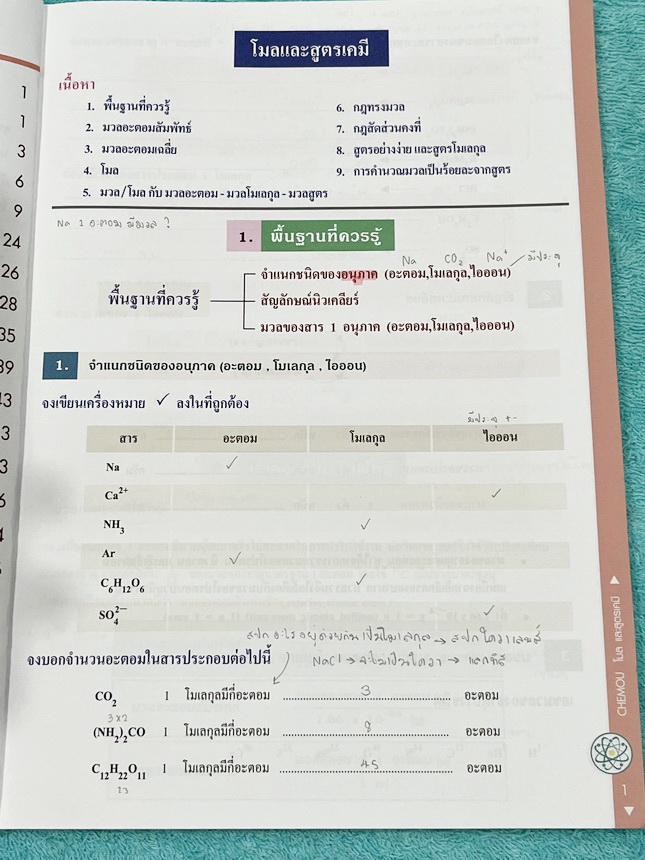 โมลและสูตรเคมี
เนื้อหา
1. พื้นฐานที่ควรรู้
2. มวลอะตอมสัมพัทธ์
3. มวลอะตอมเฉลี่ย
4. โมล
5. มวล/โมล กับ มวลอะตอม - มวลโมเลกุล - มวลสูตร
6. กฎทรงมวล
7. กฎสัดส่วนคงที่
8. สูตรอย่างง่าย และสูตรโมเลกุล
9. การคำนวณมวลเป็นร้อยละจากสูตร
Na 1 อะตอม มีมวล ?
1. พื้นฐานที่ควรรู้
Na CO₂ Na⁺ มีประจุ
พื้นฐานที่ควรรู้
จำแนกชนิดของอนุภาค (อะตอม,โมเลกุล,ไอออน)
สัญลักษณ์นิวเคลียร์
มวลของสาร 1 อนุภาค (อะตอม,โมเลกุล,ไอออน)
1. จำแนกชนิดของอนุภาค (อะตอม , โมเลกุล , ไอออน)
จงเขียนเครื่องหมาย ✓ ลงในที่ถูกต้อง
มีประจุ + -
สาร อะตอม โมเลกุล ไอออน
Na ✓
Ca²⁺ ✓
NH₃ ✓
Ar ✓
C₆H₁₂O₆ ✓
SO₄²⁻ ✓
จงบอกจำนวนอะตอมในสารประกอบต่อไปนี้
NaCl →
CO₂ 1 โมเลกุลมีกี่อะตอม 3 อะตอม
3×2
(NH₂)₂CO 1 โมเลกุลมีกี่อะตอม 8 อะตอม
C₁₂H₂₂O₁₁ 1 โมเลกุลมีกี่อะตอม 45 อะตอม
23
CHEMOU โมล และสูตรเคมี
1
1
1
3
6
9
24
26
28
35
39
43
3
3